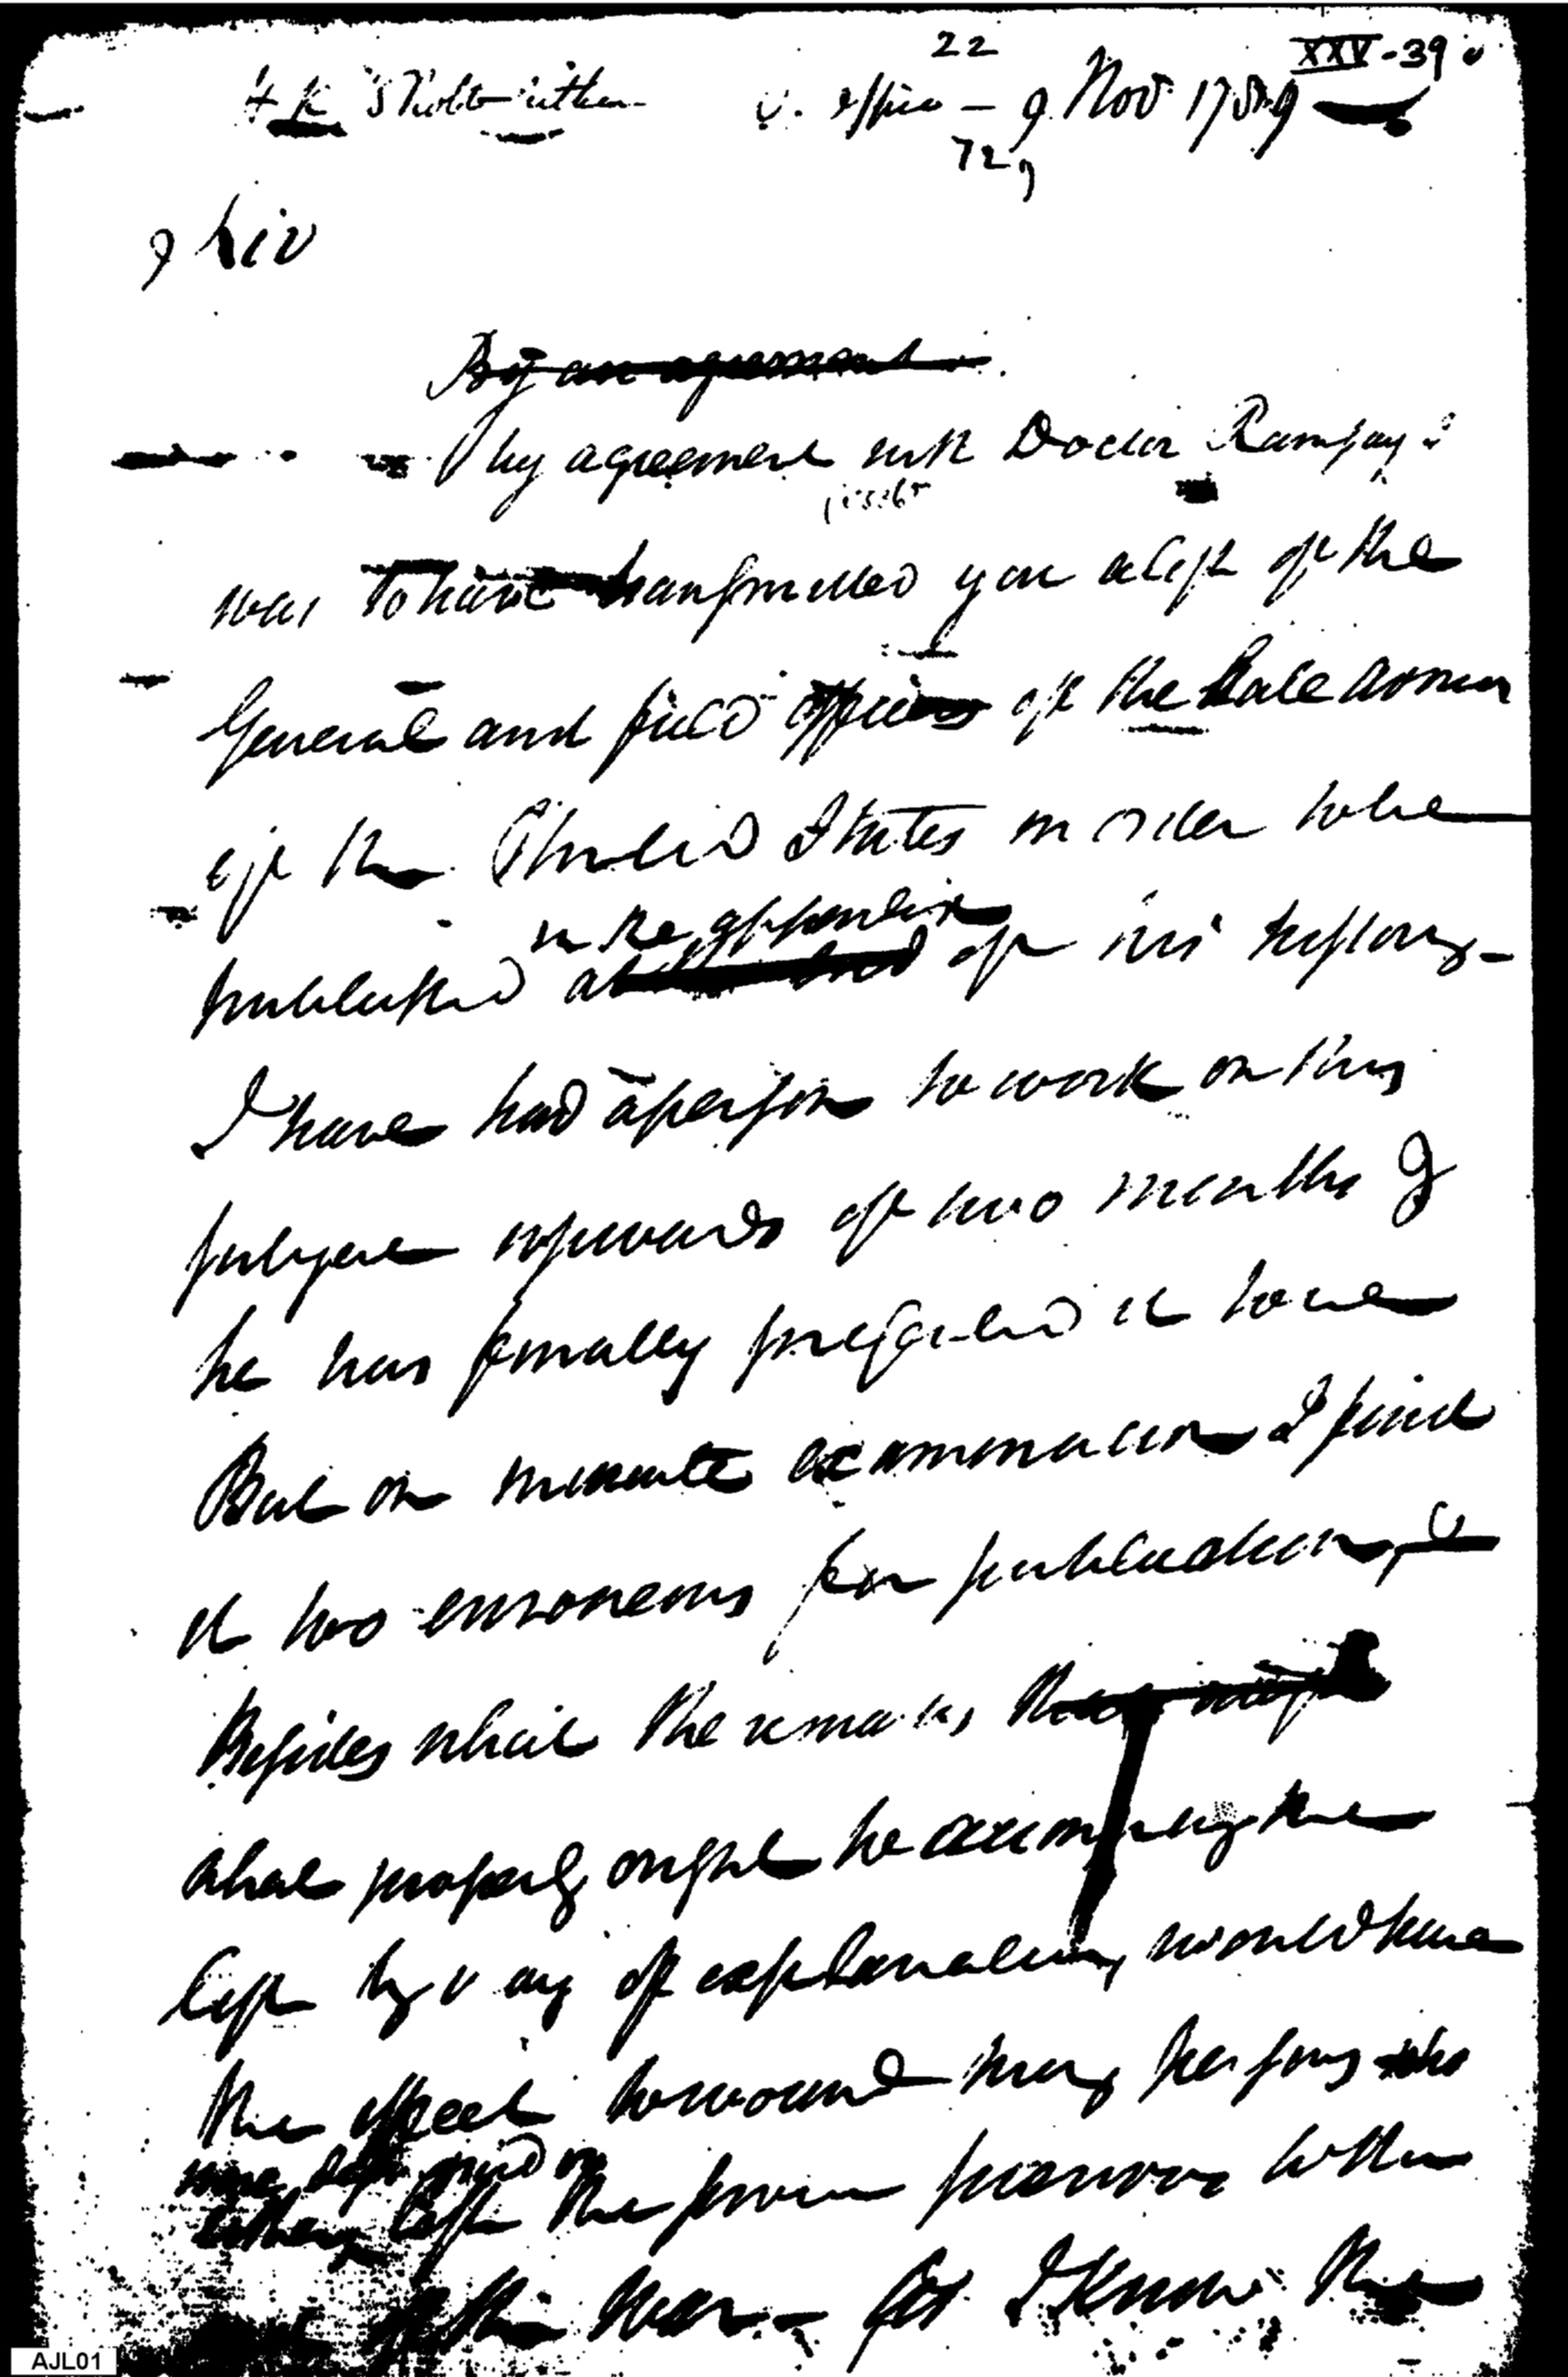 22
XXV-39
9 Nov 1789
72
Sir
By an agreement
by agreement with Doctor Ramsay I
was to have transmitted you a list of the
General and field officers of the late armies
of the United States in order to be
in the appendix
published at of his history -
I have had a person to work on this
subject upwards of two months &
he has finally it to me
But on minute examination I find
it too erroneous for publication, &
Besides which the remarks that might
that properly ought to accompany the
list by way of explanation, would have
the effect to wound many persons who
the service previous to the
of the war - for I know the
AJL01